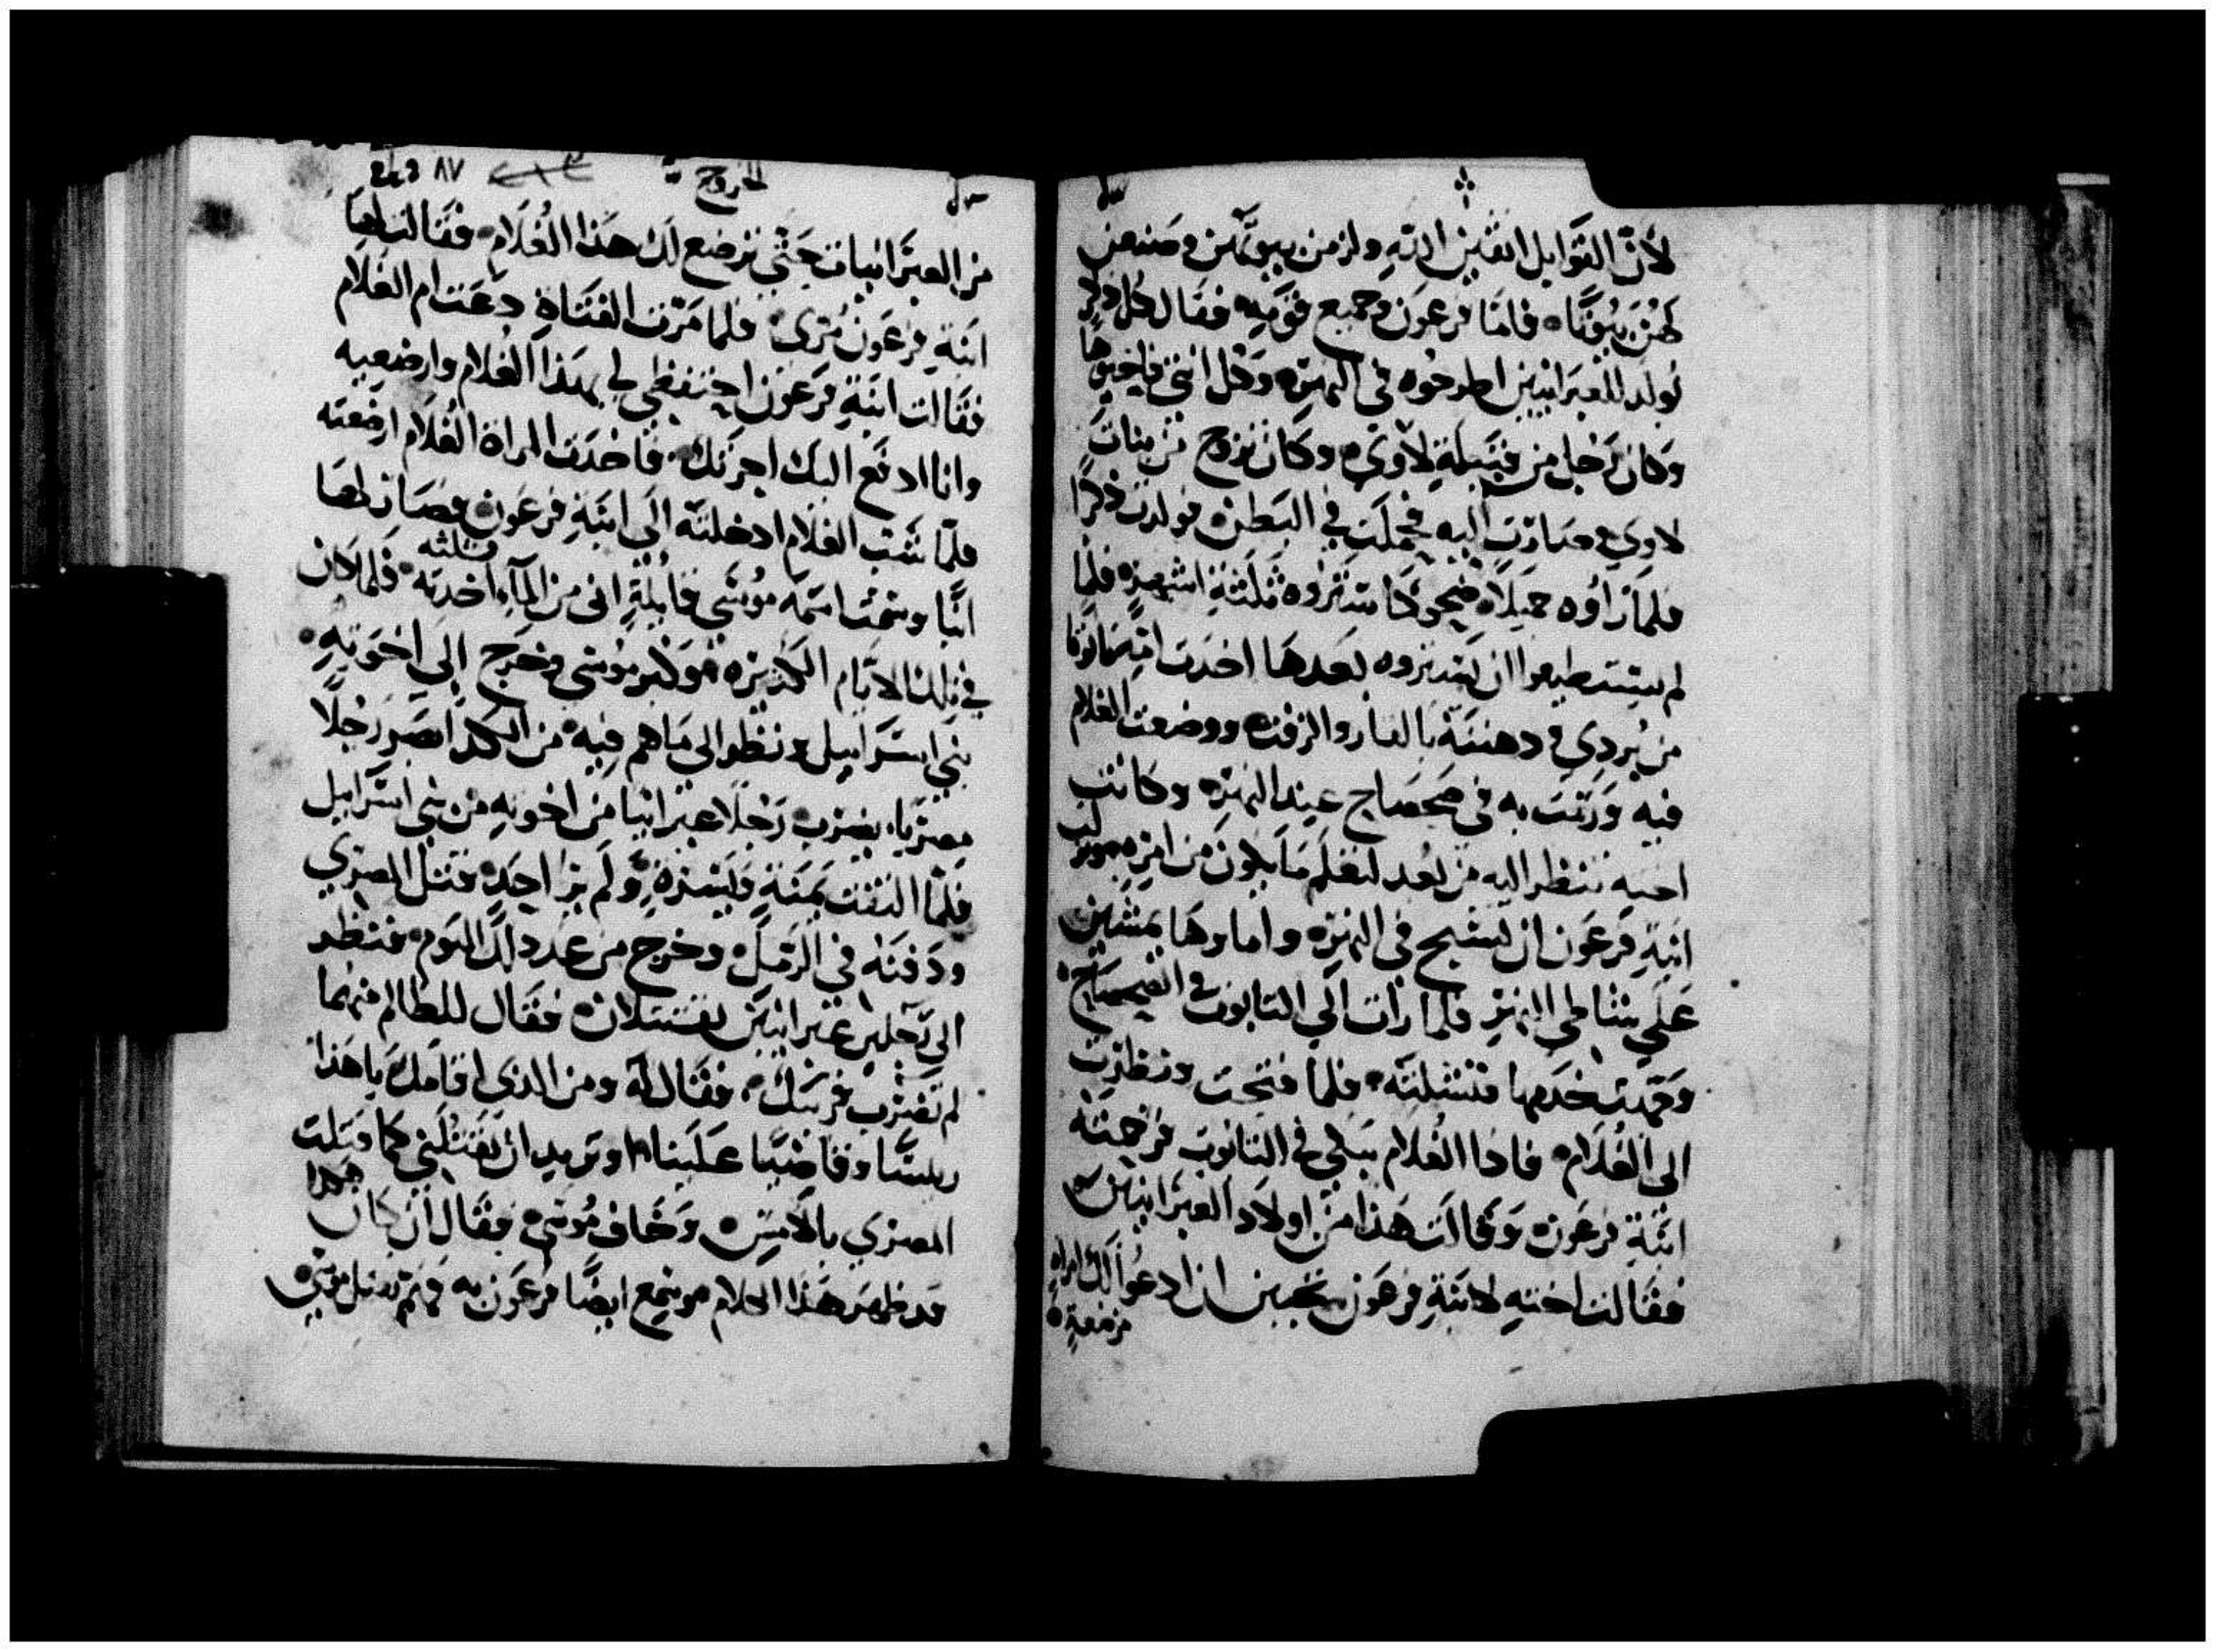 لأنّ القوابل اتقين الله ولزمن بيوتهن وصنعن
لهن بيوتًا فامّا فرعون وجميع قومه فقال كل ذكر
يولد للعبرانيين اطرحوه في النهر وكل انثي فاخبوها
وكان رجل من قبيلة لاوي وكان تزوج من بنات
لاوي وصارت اليه فحملت في البطن فولدت ذكرًا
فلما راوه جميلاً ستروه ثلثة اشهر فلما
لم يستطيعوا ان يستروه بعدها اخدت امه تابوتا
من بردي ودهنته بالقار والزفت ووضعت الغلام
فيه ورمت به في ضحضاح عند النهر وكانت
اخته تنظر اليه من بعد لتعلم ما يكون من امره
ابنة فرعون ان تسبح في النهر واماوها يمشين
علي شاطي النهر فلما رات الي التابوت في الضحضاح
خدمها فنشلته فلما فتحت ونظرت
الي الغلام فادا الغلام يبكي في التابوت فرحمته
ابنة فرعون وقالت هذا من اولاد العبرانيين
فقالت اخته لابنة فرعون تحبين ان ادعوا لك امراه
مرضعة
الخروج ٨٧
من العبرانيات حتي ترضع لك هذا الغلام فقالت لها
ابنة فرعون مري فلما مرت الفتاة دعت ام الغلام
فقالت ابنة فرعون احتفظي لي بهذا الغلام وارضعيه
وانا ادفع اليك اجرتك فاخدت المراة الغلام ارضعته
فلمّا شب الغلام ادخلته الي ابنة فرعون فصار لها
ابنًا وسمت اسمه موسي قايلة اني من المآء اخدته فلما كان
في تلك الايام الكثيره وكبر موسي وخرج الي اخوته
بني اسرايل ونظر الي ما هم فيه من الكد ابصر رجلًا
مصريا يضرب رجلا عبرانيا من اخوته من بني اسرايل
فلمّا التفت يمنة ويسرة ولم ير احد فقتل المصري
ودفنه في الرمل وخرج من غد دلك اليوم فنظر
الي رجلين عبرانيين يقتتلان فقال للظالم منهما
لم تضرب قريبك فقال له ومن الذي اقامك يا هذا
ريسًا وقاضيًا علينا او تريد ان تقتلني كما قتلت
المصري بالامس وخاف موسي فقال ان كان هكدا
قد ظهر هذا الكلام وسمع ايضًا فرعون